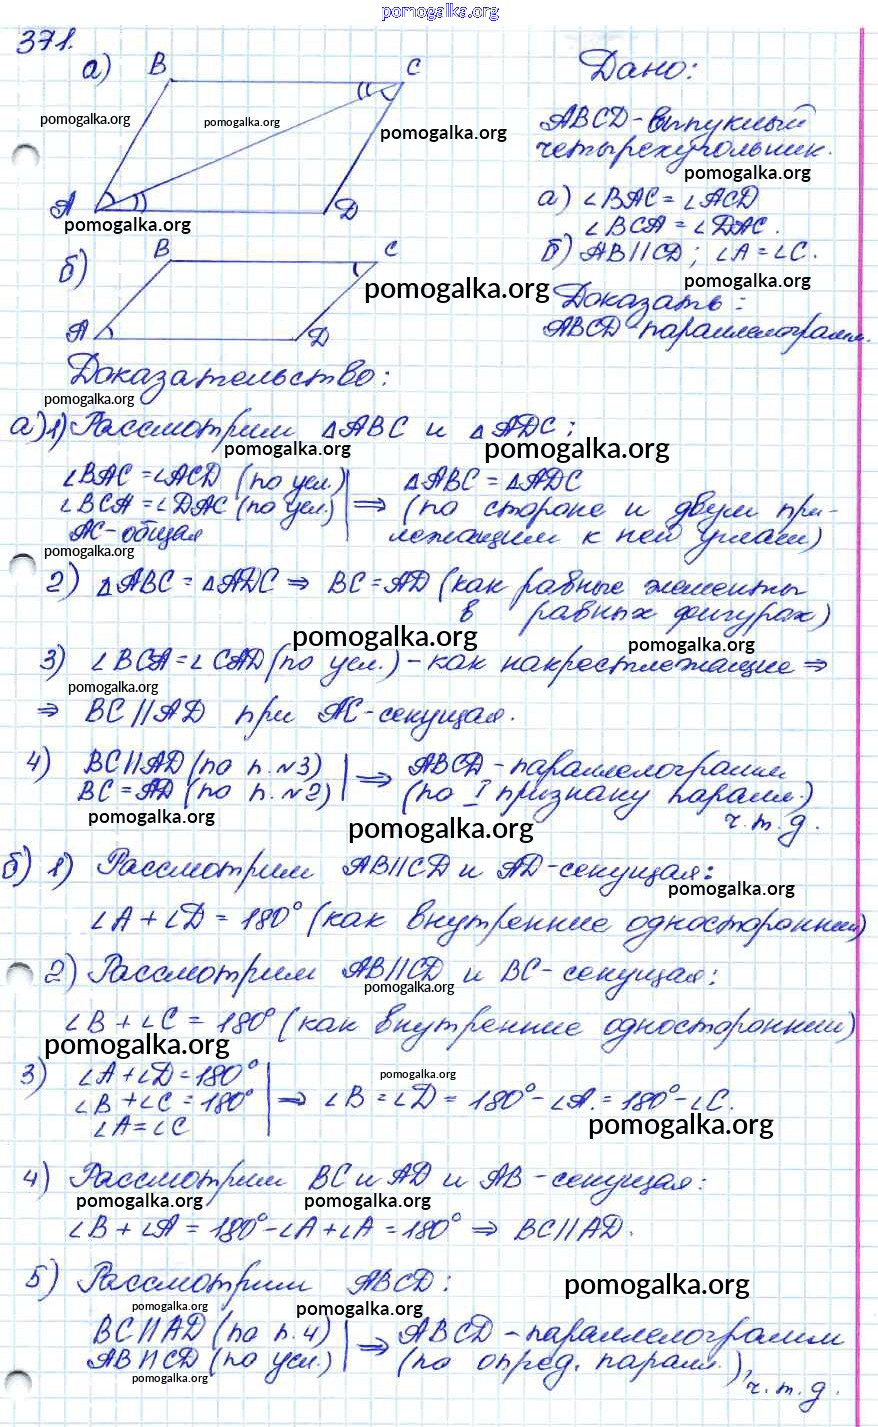 pomogalka.org
371.
а) B C
A D
pomogalka.org
pomogalka.org
pomogalka.org
pomogalka.org
Дано:
ABCD - выпуклый
четырехугольник.
pomogalka.org
а) ∠BAC = ∠ACD
∠BCA = ∠DAC.
б) AB||CD; ∠A = ∠C.
pomogalka.org
Доказать:
ABCD - параллелограмм.
б) B C
A D
pomogalka.org
Доказательство:
pomogalka.org
а) 1) Рассмотрим △ABC и △ADC:
pomogalka.org pomogalka.org
∠BAC = ∠ACD (по усл.) | △ABC = △ADC
∠BCA = ∠DAC (по усл.) | ⇒ (по стороне и двум при-
AC - общая | лежащим к ней углам)
pomogalka.org
2) △ABC = △ADC ⇒ BC = AD (как равные элементы
в равных фигурах)
pomogalka.org pomogalka.org
3) ∠BCA = ∠CAD (по усл.) - как накрестлежащие ⇒
pomogalka.org
⇒ BC||AD при AC - секущая.
4) BC||AD (по п. №3) | ABCD - параллелограмм
BC = AD (по п. №2) | ⇒ (по I признаку паралл.)
ч.т.д.
pomogalka.org pomogalka.org
б) 1) Рассмотрим AB||CD и AD - секущая:
pomogalka.org
∠A + ∠D = 180° (как внутренние односторонние)
2) Рассмотрим AB||CD и BC - секущая:
pomogalka.org
∠B + ∠C = 180° (как внутренние односторонние)
pomogalka.org
3) ∠A + ∠D = 180°
∠B + ∠C = 180° | ⇒ ∠B = ∠D = 180° - ∠A. = 180° - ∠C.
∠A = ∠C
pomogalka.org
pomogalka.org
4) Рассмотрим BC и AD и AB - секущая:
pomogalka.org pomogalka.org
∠B + ∠A = 180° - ∠A + ∠A = 180° ⇒ BC||AD.
5) Рассмотрим ABCD:
pomogalka.org
pomogalka.org pomogalka.org
BC||AD (по п. 4) | ⇒ ABCD - параллелограмм
AB||CD (по усл.) | (по опред. паралл.),
pomogalka.org
ч.т.д.